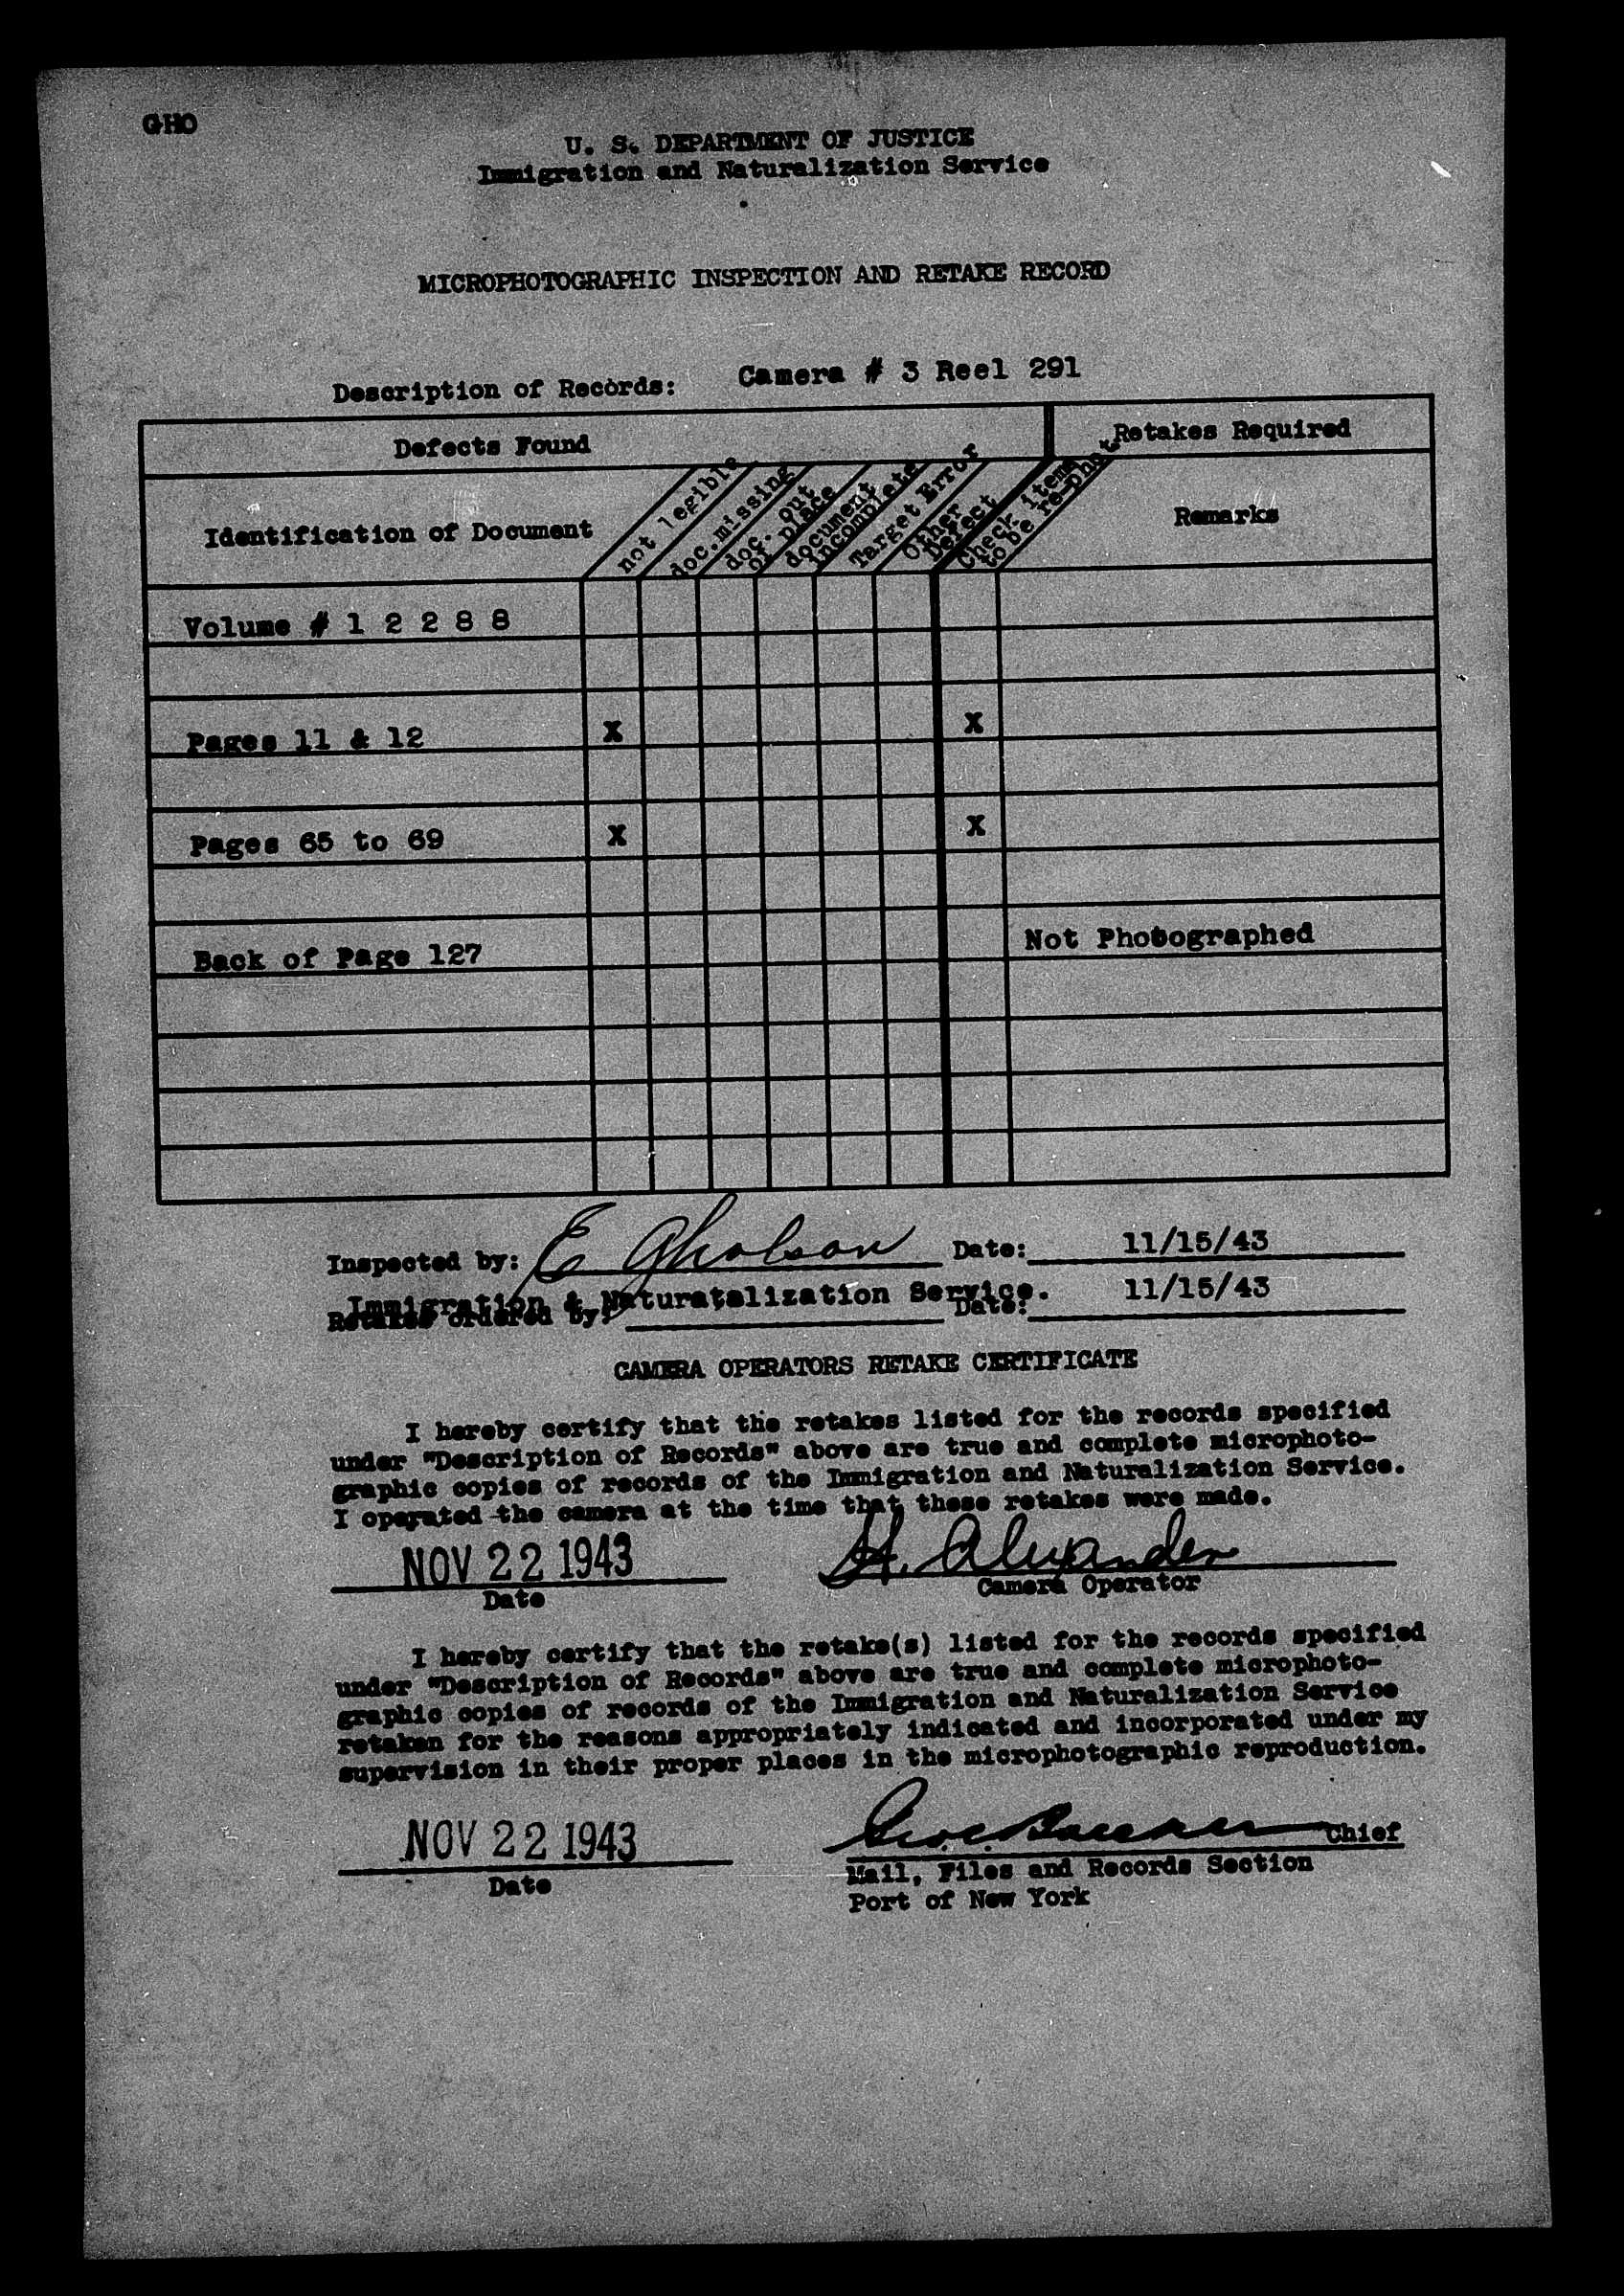 GHO
U. S. DEPARTMENT OF JUSTICE
Immigration and Naturalization Service
MICROPHOTOGRAPHIC INSPECTION AND RETAKE RECORD
Description of Records: Camera # 3 Reel 291
Defects Found
Retakes Required
Identification of Document
not legible
doc.missing
doc. out
of place
document
incomplete
Target Error
Other
Defect
Check items
to be re-phot.
Remarks
Volume # 1 2 2 8 8
Pages 11 & 12 X X
Pages 65 to 69 X X
Back of Page 127 Not Photographed
Inspected by: E Gholson Date: 11/15/43
Immigration & Naturatalization Service. 11/15/43
Retakes ordered by: Date:
CAMERA OPERATORS RETAKE CERTIFICATE
I hereby certify that the retakes listed for the records specified
under "Description of Records" above are true and complete microphoto-
graphic copies of records of the Immigration and Naturalization Service.
I operated the camera at the time that these retakes were made.
NOV 22 1943 H. Alexander
Date Camera Operator
I hereby certify that the retake(s) listed for the records specified
under "Description of Records" above are true and complete microphoto-
graphic copies of records of the Immigration and Naturalization Service
retaken for the reasons appropriately indicated and incorporated under my
supervision in their proper places in the microphotographic reproduction.
NOV 22 1943 Chief
Date
Mail, Files and Records Section
Port of New York